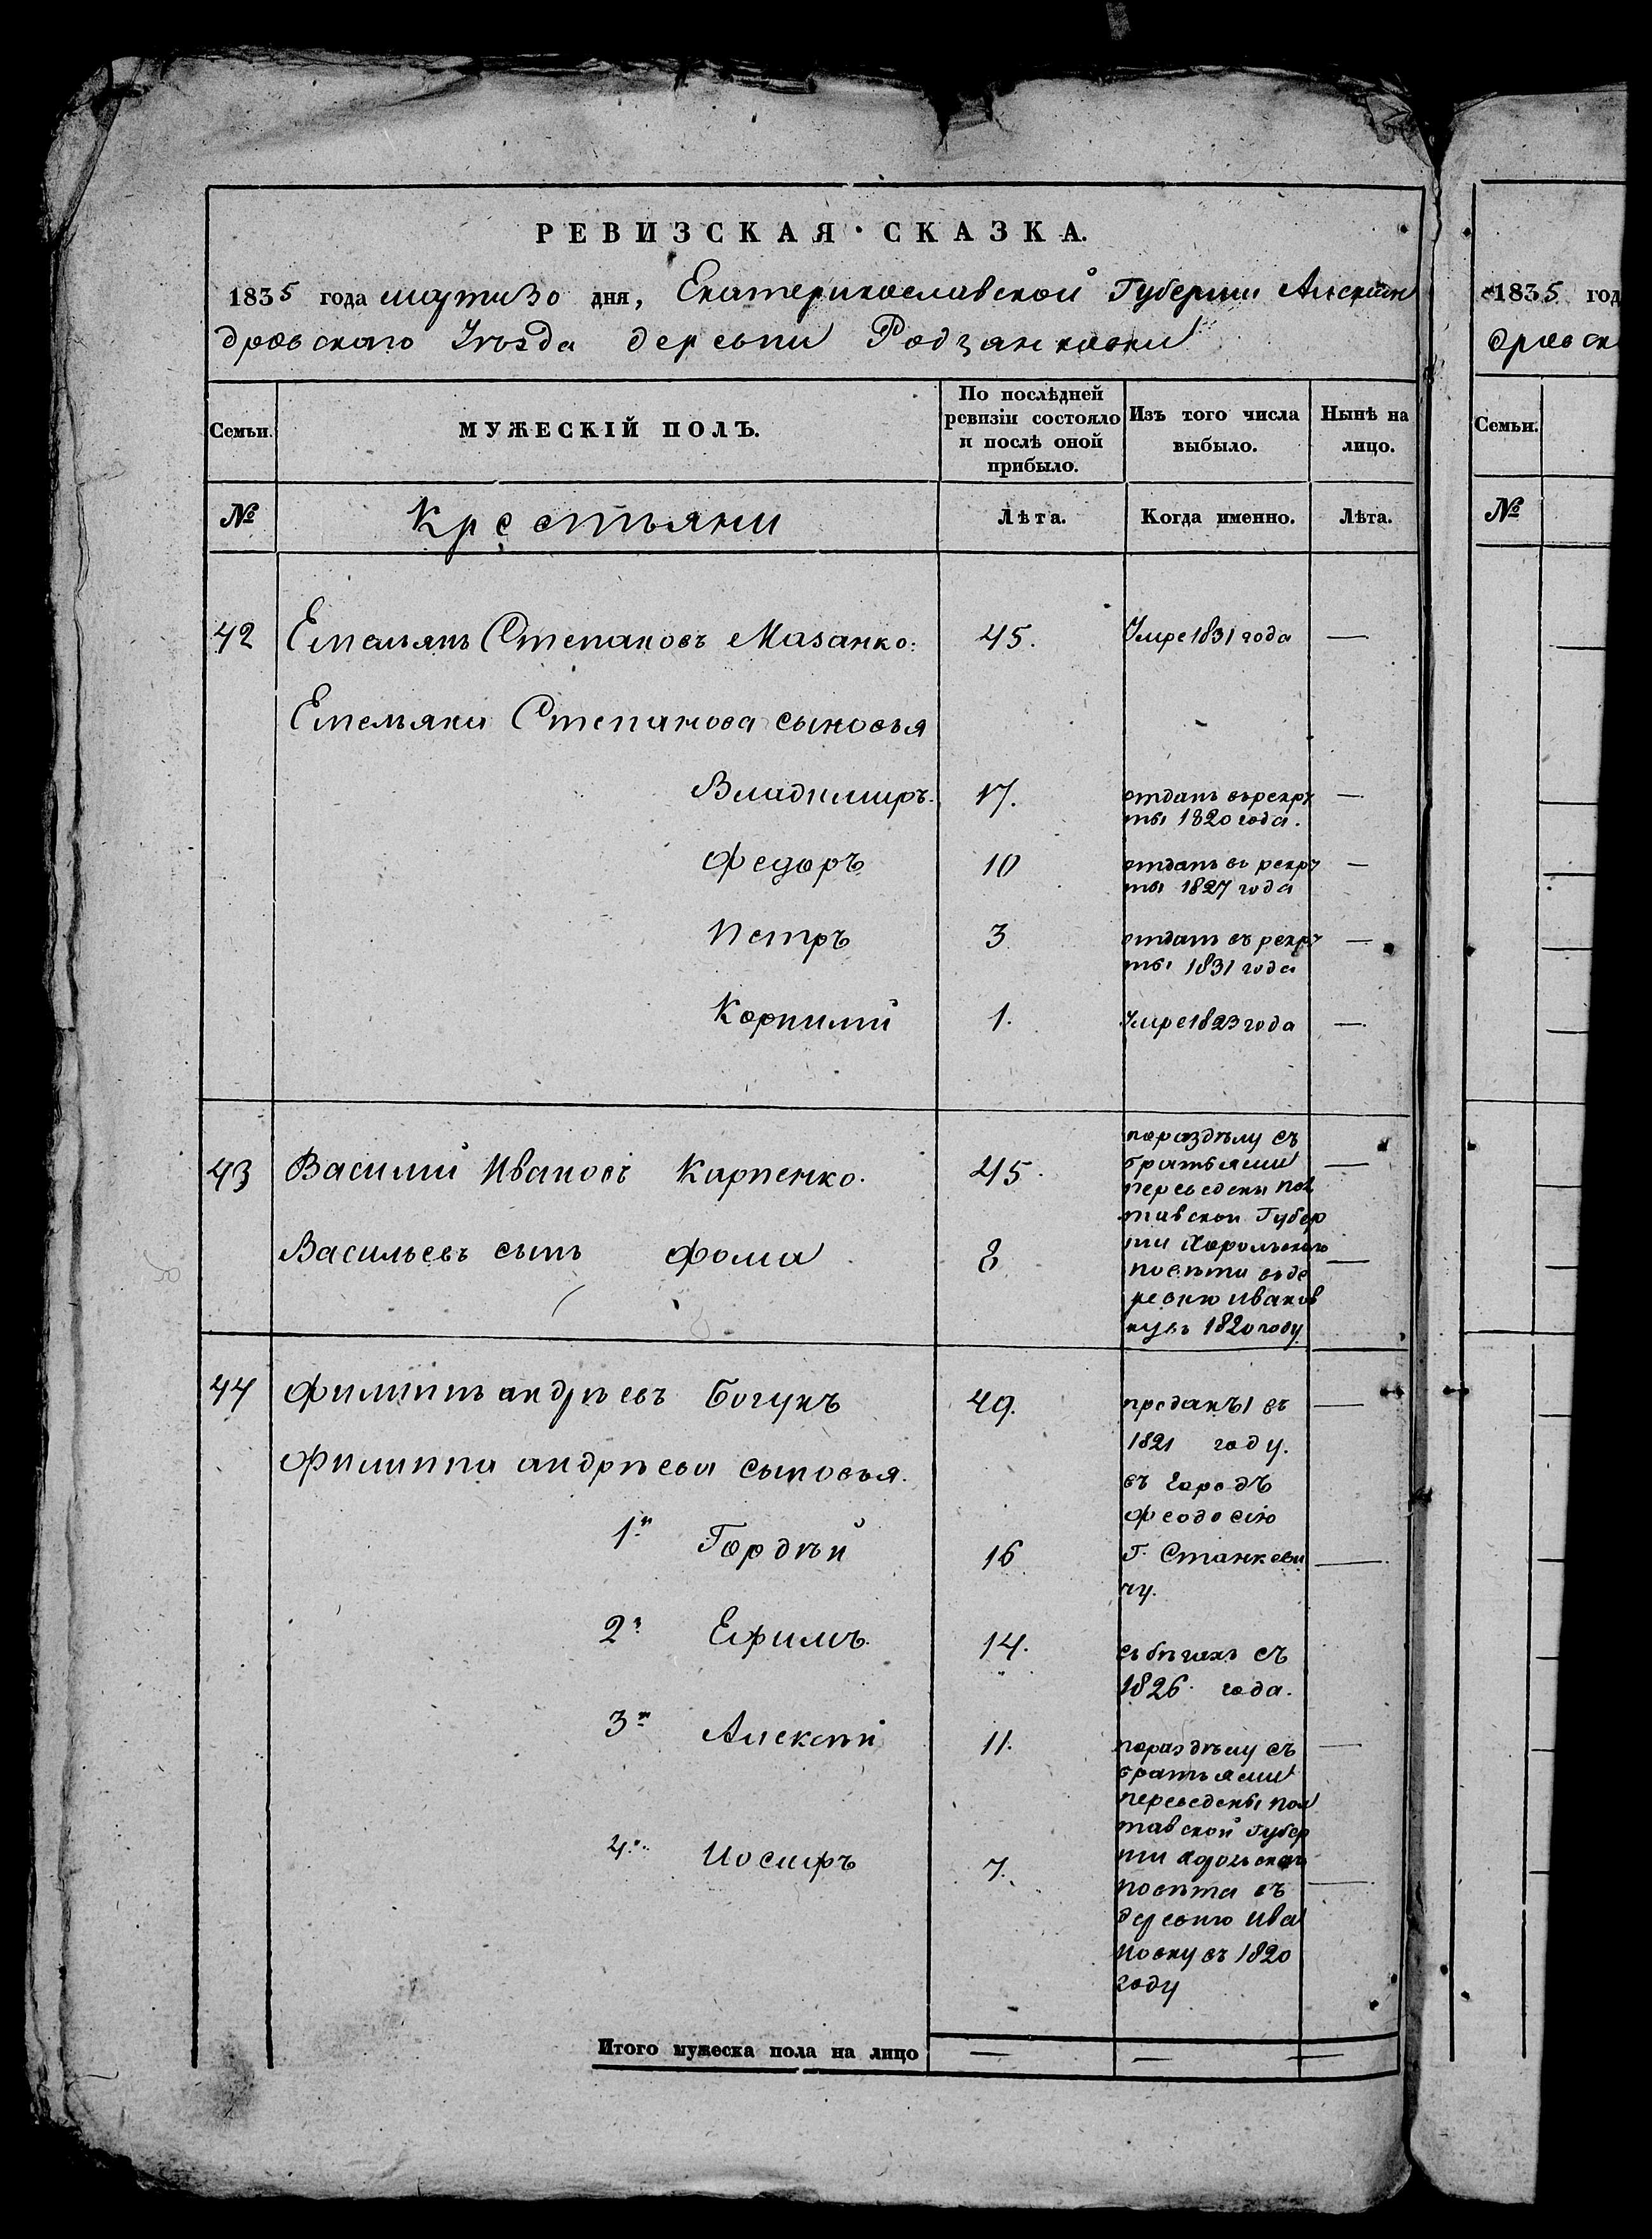 РЕВИЗСКАЯ СКАЗКА.
1835 года марта 30 дня, Екатеринославской Губерніи Алексан
дровского Уѣзда деревни Родзянковки
Семьи.
МУЖЕСКІЙ ПОЛЪ.
По послѣдней ревизіи состояло и послѣ оной прибыло.
Изъ того числа выбыло.
Нынѣ на лицо.
№
Крестьяни
Лѣта.
Когда именно.
Лѣта.
42 Емельянъ Степановъ Мазанко: 45. Умре 1831 года —
Емельяна Степанова сыновья
Владимиръ. 17. отданъ врекру —
ты 1820 года.
Федоръ 10 отданъ въ рекру —
ты 1827 года
Петръ 3 отданъ въ рекру —
ты 1831 года
Корнилий 1. Умре 1823 года —
43 Василий Ивановъ Карпенко. 45. —
Васильевъ сынъ Фома 8 —
поразделу съ
братьями
переведены Пол
тавской Губер
нии Хорольского
повѣта въде
ревню Иванов
ку въ 1820 году
44 Филиппъ андрѣевъ Богунъ 49. проданы въ —
1821 году.
Филиппа андрѣева сыновья.
въ городъ
Феодосію
1й Гордѣй 16 Г. Станкеви —
чу.
2й Ефимъ. 14. въ бѣгахъ съ
1826 года.
3й Алексѣй 11. поразделу съ —
братьями
переведены Пол
тавской Губер
4й Иосифъ 7. нии Хорольскаго —
повѣта въ
деревню Ива
новку въ 1820
году
Итого мужеска пола на лицо — — —
1835 год
дровск
Семьи.
№